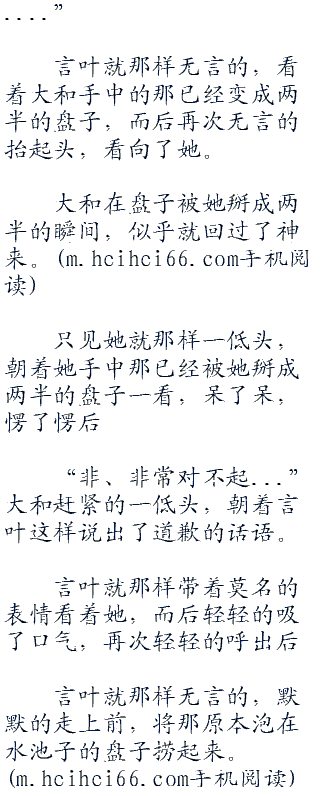 ....”
言叶就那样无言的，看
着大和手中的那已经变成两
半的盘子，而后再次无言的
抬起头，看向了她。
大和在盘子被她掰成两
半的瞬间，似乎就回过了神
来。(m.hcihci66.com手机阅
读)
只见她就那样一低头，
朝着她手中那已经被她掰成
两半的盘子一看，呆了呆，
愣了愣后
“非、非常对不起...”
大和赶紧的一低头，朝着言
叶这样说出了道歉的话语。
言叶就那样带着莫名的
表情看着她，而后轻轻的吸
了口气，再次轻轻的呼出后
言叶就那样无言的，默
默的走上前，将那原本泡在
水池子的盘子捞起来。
(m.hcihci66.com手机阅读)